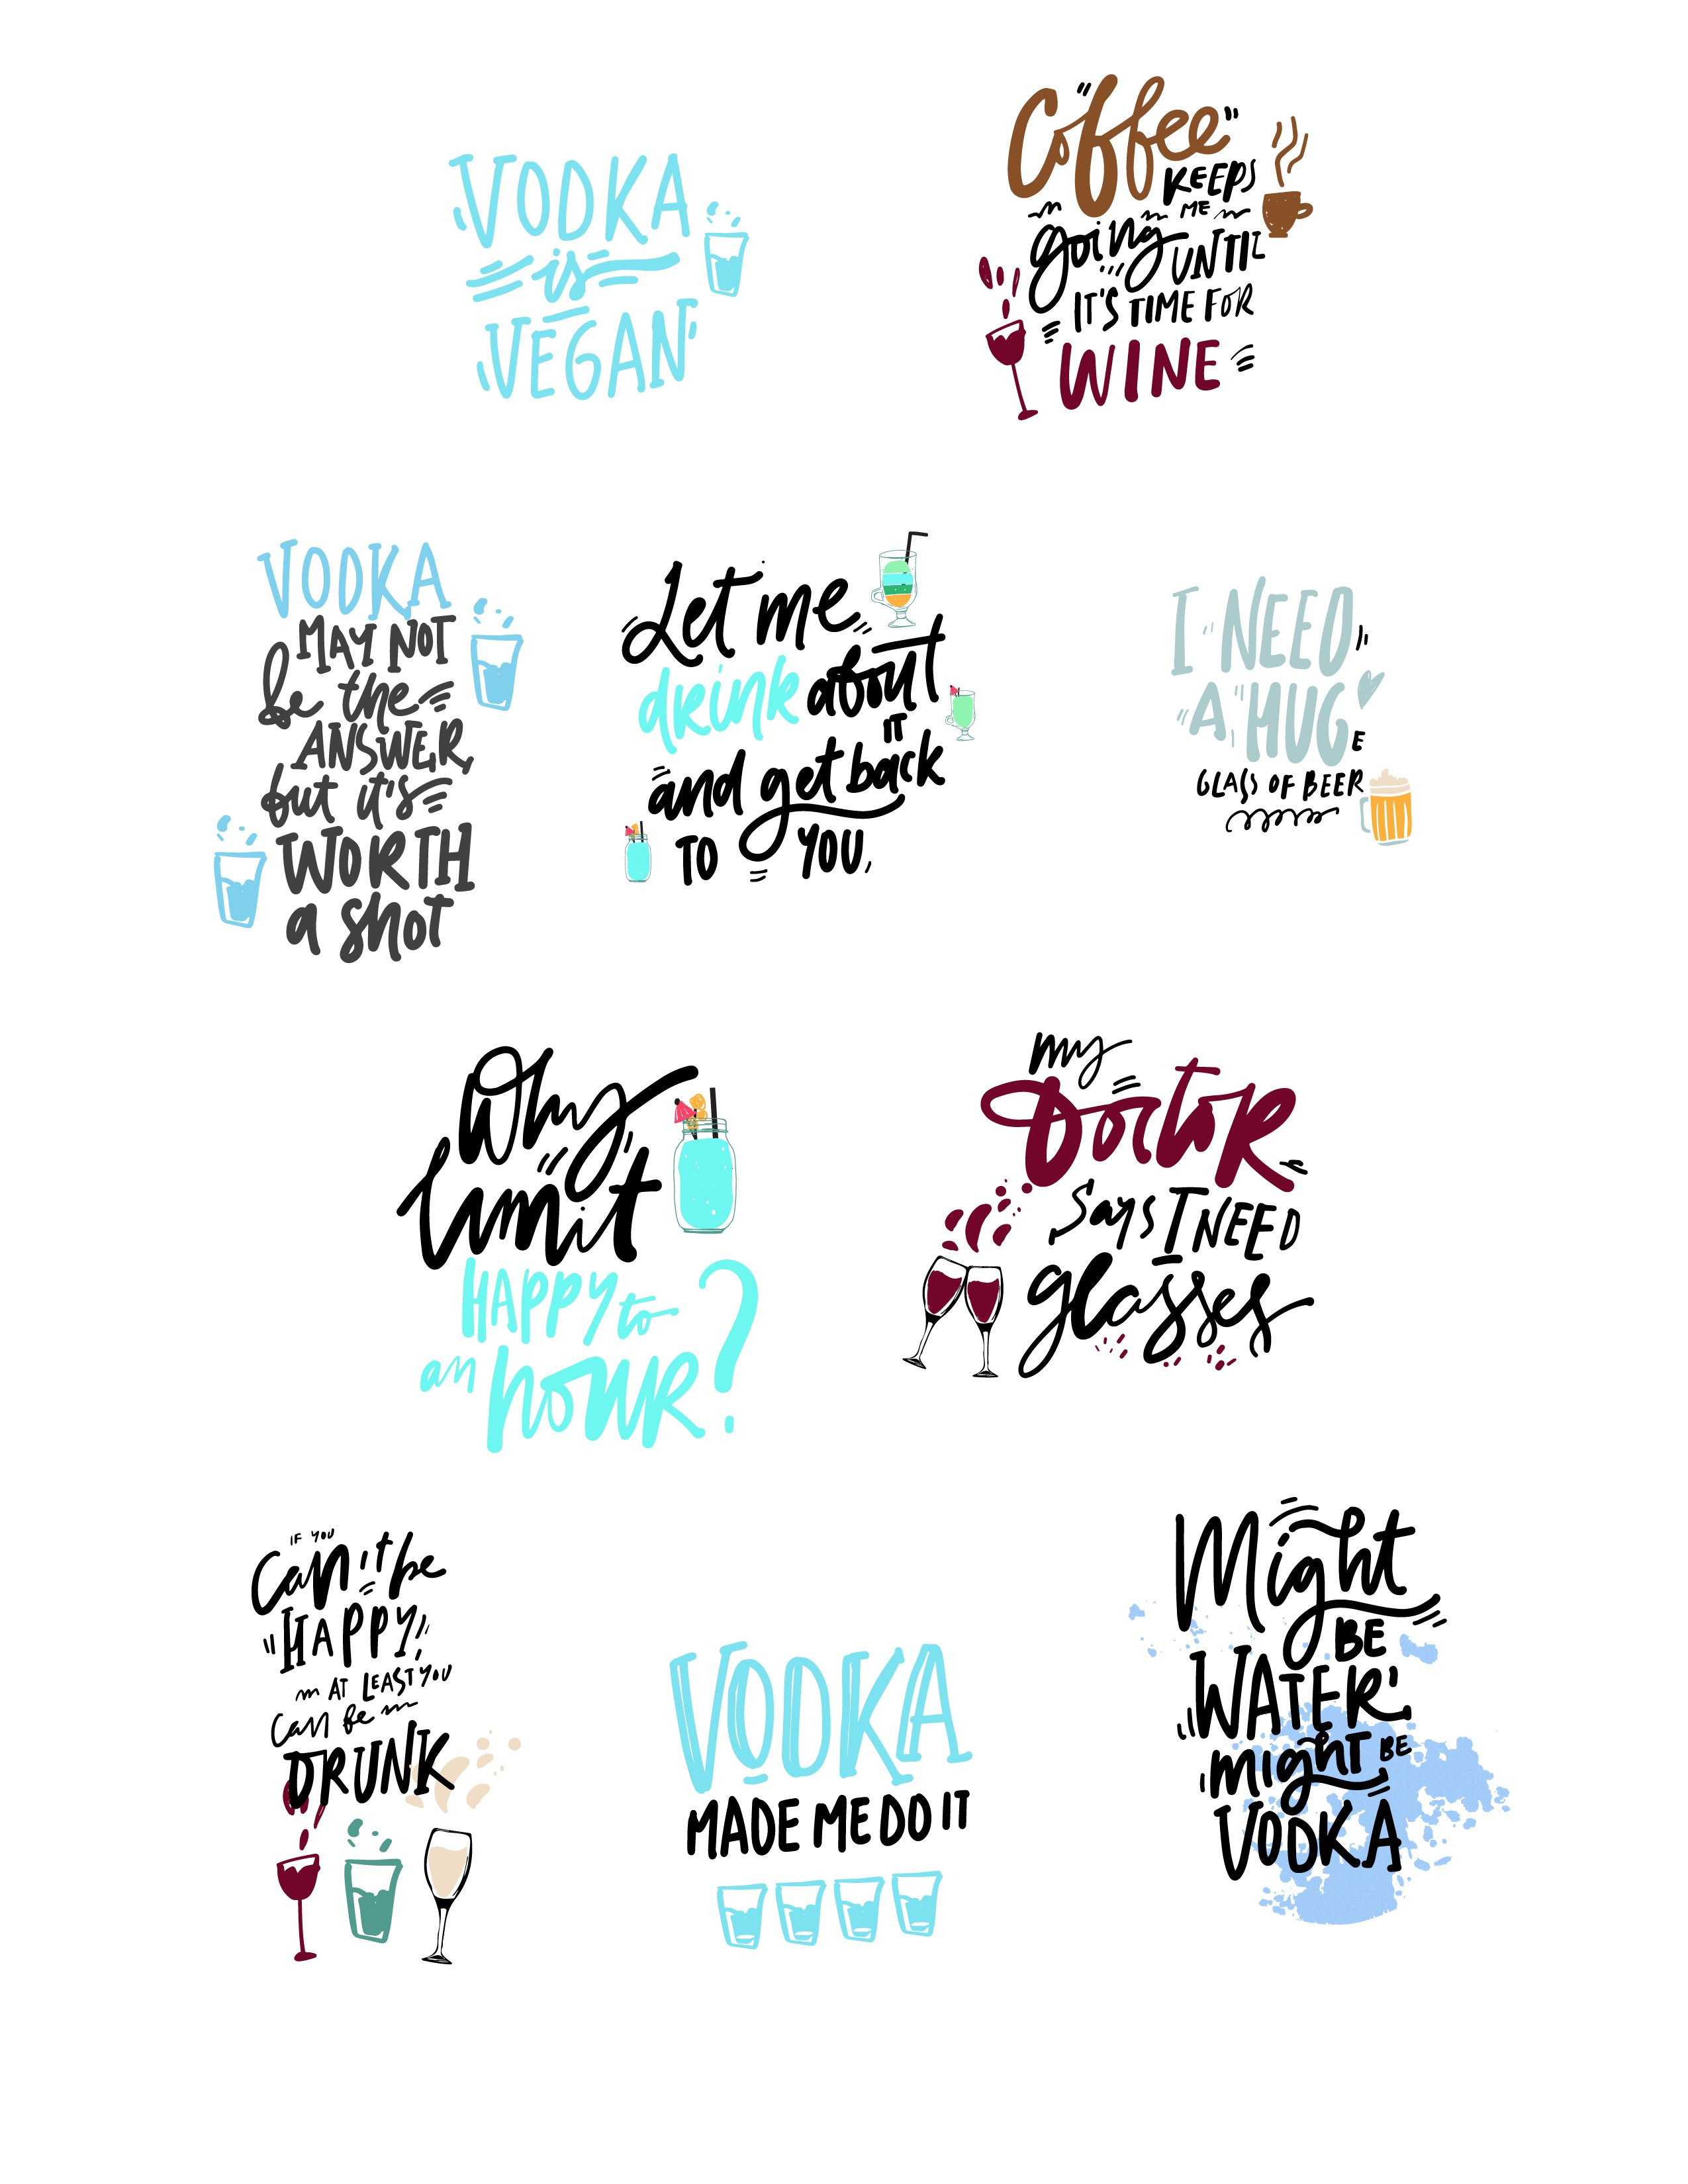 VODKA
is
VEGAN
"Coffee"
KEEPS
ME
going UNTIL
IT'S TIME FOR
WINE
VODKA
MAY NOT
be the
ANSWER
but it's
WORTH
a shot
Let me
drink about
IT
and get back
TO YOU.
I NEED
A HUG
E
GLASS OF BEER
Why
limit
HAPPY to
an hour?
my
Doctor
Says I NEED
glasses
IF YOU
can't be
HAPPY,
AT LEAST YOU
can be
DRUNK
VODKA
MADE ME DO IT
Might
BE
WATER
might BE
VODKA